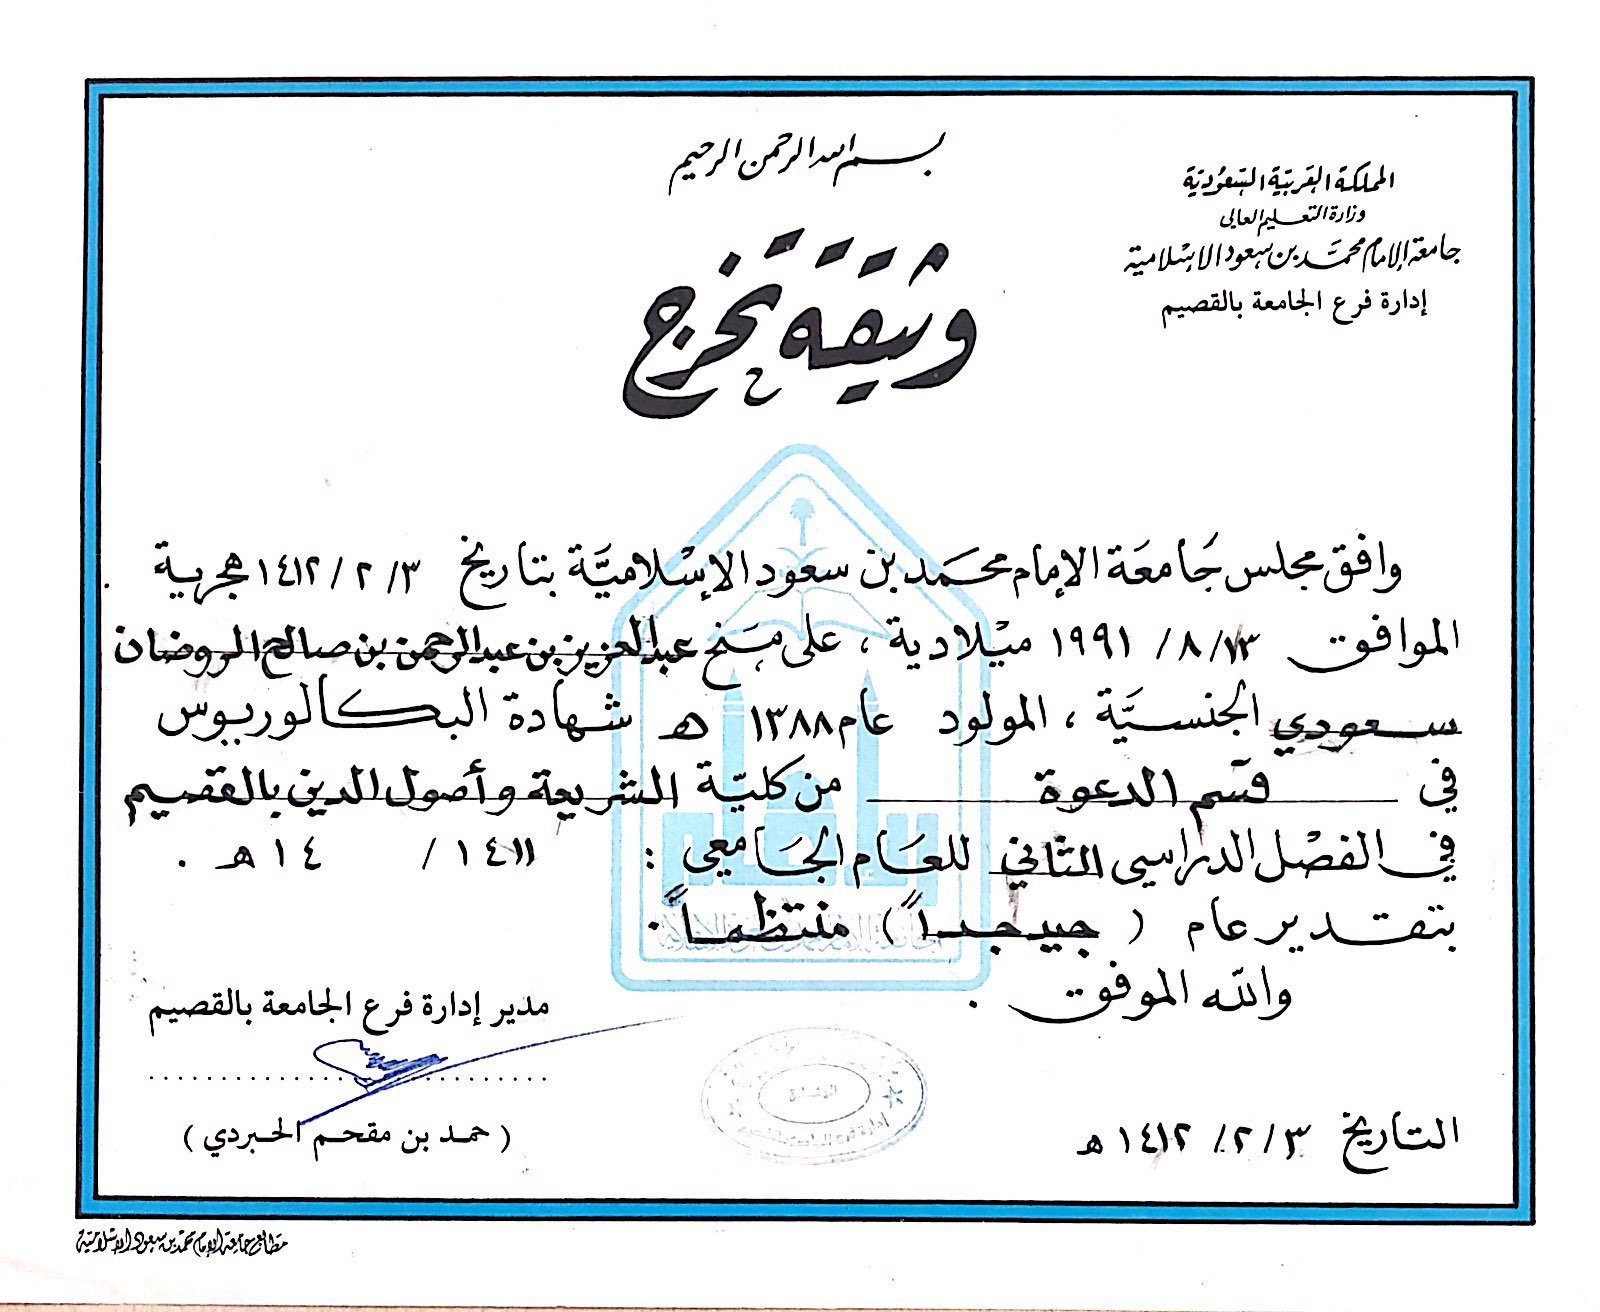 بسم الله الرحمن الرحيم
المملكة العربيّة السّعُوديّة
وزارة التعليم العالي
جامعة الإمام محمّد بن سعود الإسْلامية
إدارة فرع الجامعة بالقصيم
وثيقة تخرج
وافق مجلس جَامعَة الإمام محمَد بن سعود الإسْلاميَّة بتاريخ ٣/ ٢ / ١٤١٢ هجرية .
الموافق ١٣/ ٨ / ١٩٩١ ميْلادية ، على منح عبدالعزيز بن عبدالرحمن بن صالح الروضان
سعودي الجنسيَّة ، المولود عام ١٣٨٨ هـ شهادة البكالوريوس
في قسم الدعوة من كليّة الشريعة وأصول الدين بالقصيم
في الفصْل الدراسي الثاني للعَام الجَامعي : ١٤١١ / ١٤ هـ .
بتقدير عام ( جيد جداً ) منتظماً .
والله الموفق .
مدير إدارة فرع الجامعة بالقصيم
( حمد بن مقحم الحبردي )
التاريخ ٣ / ٢ / ١٤١٢ هـ
مطابع جامعة الإمام محمّد بن سعود الإسْلاميّة